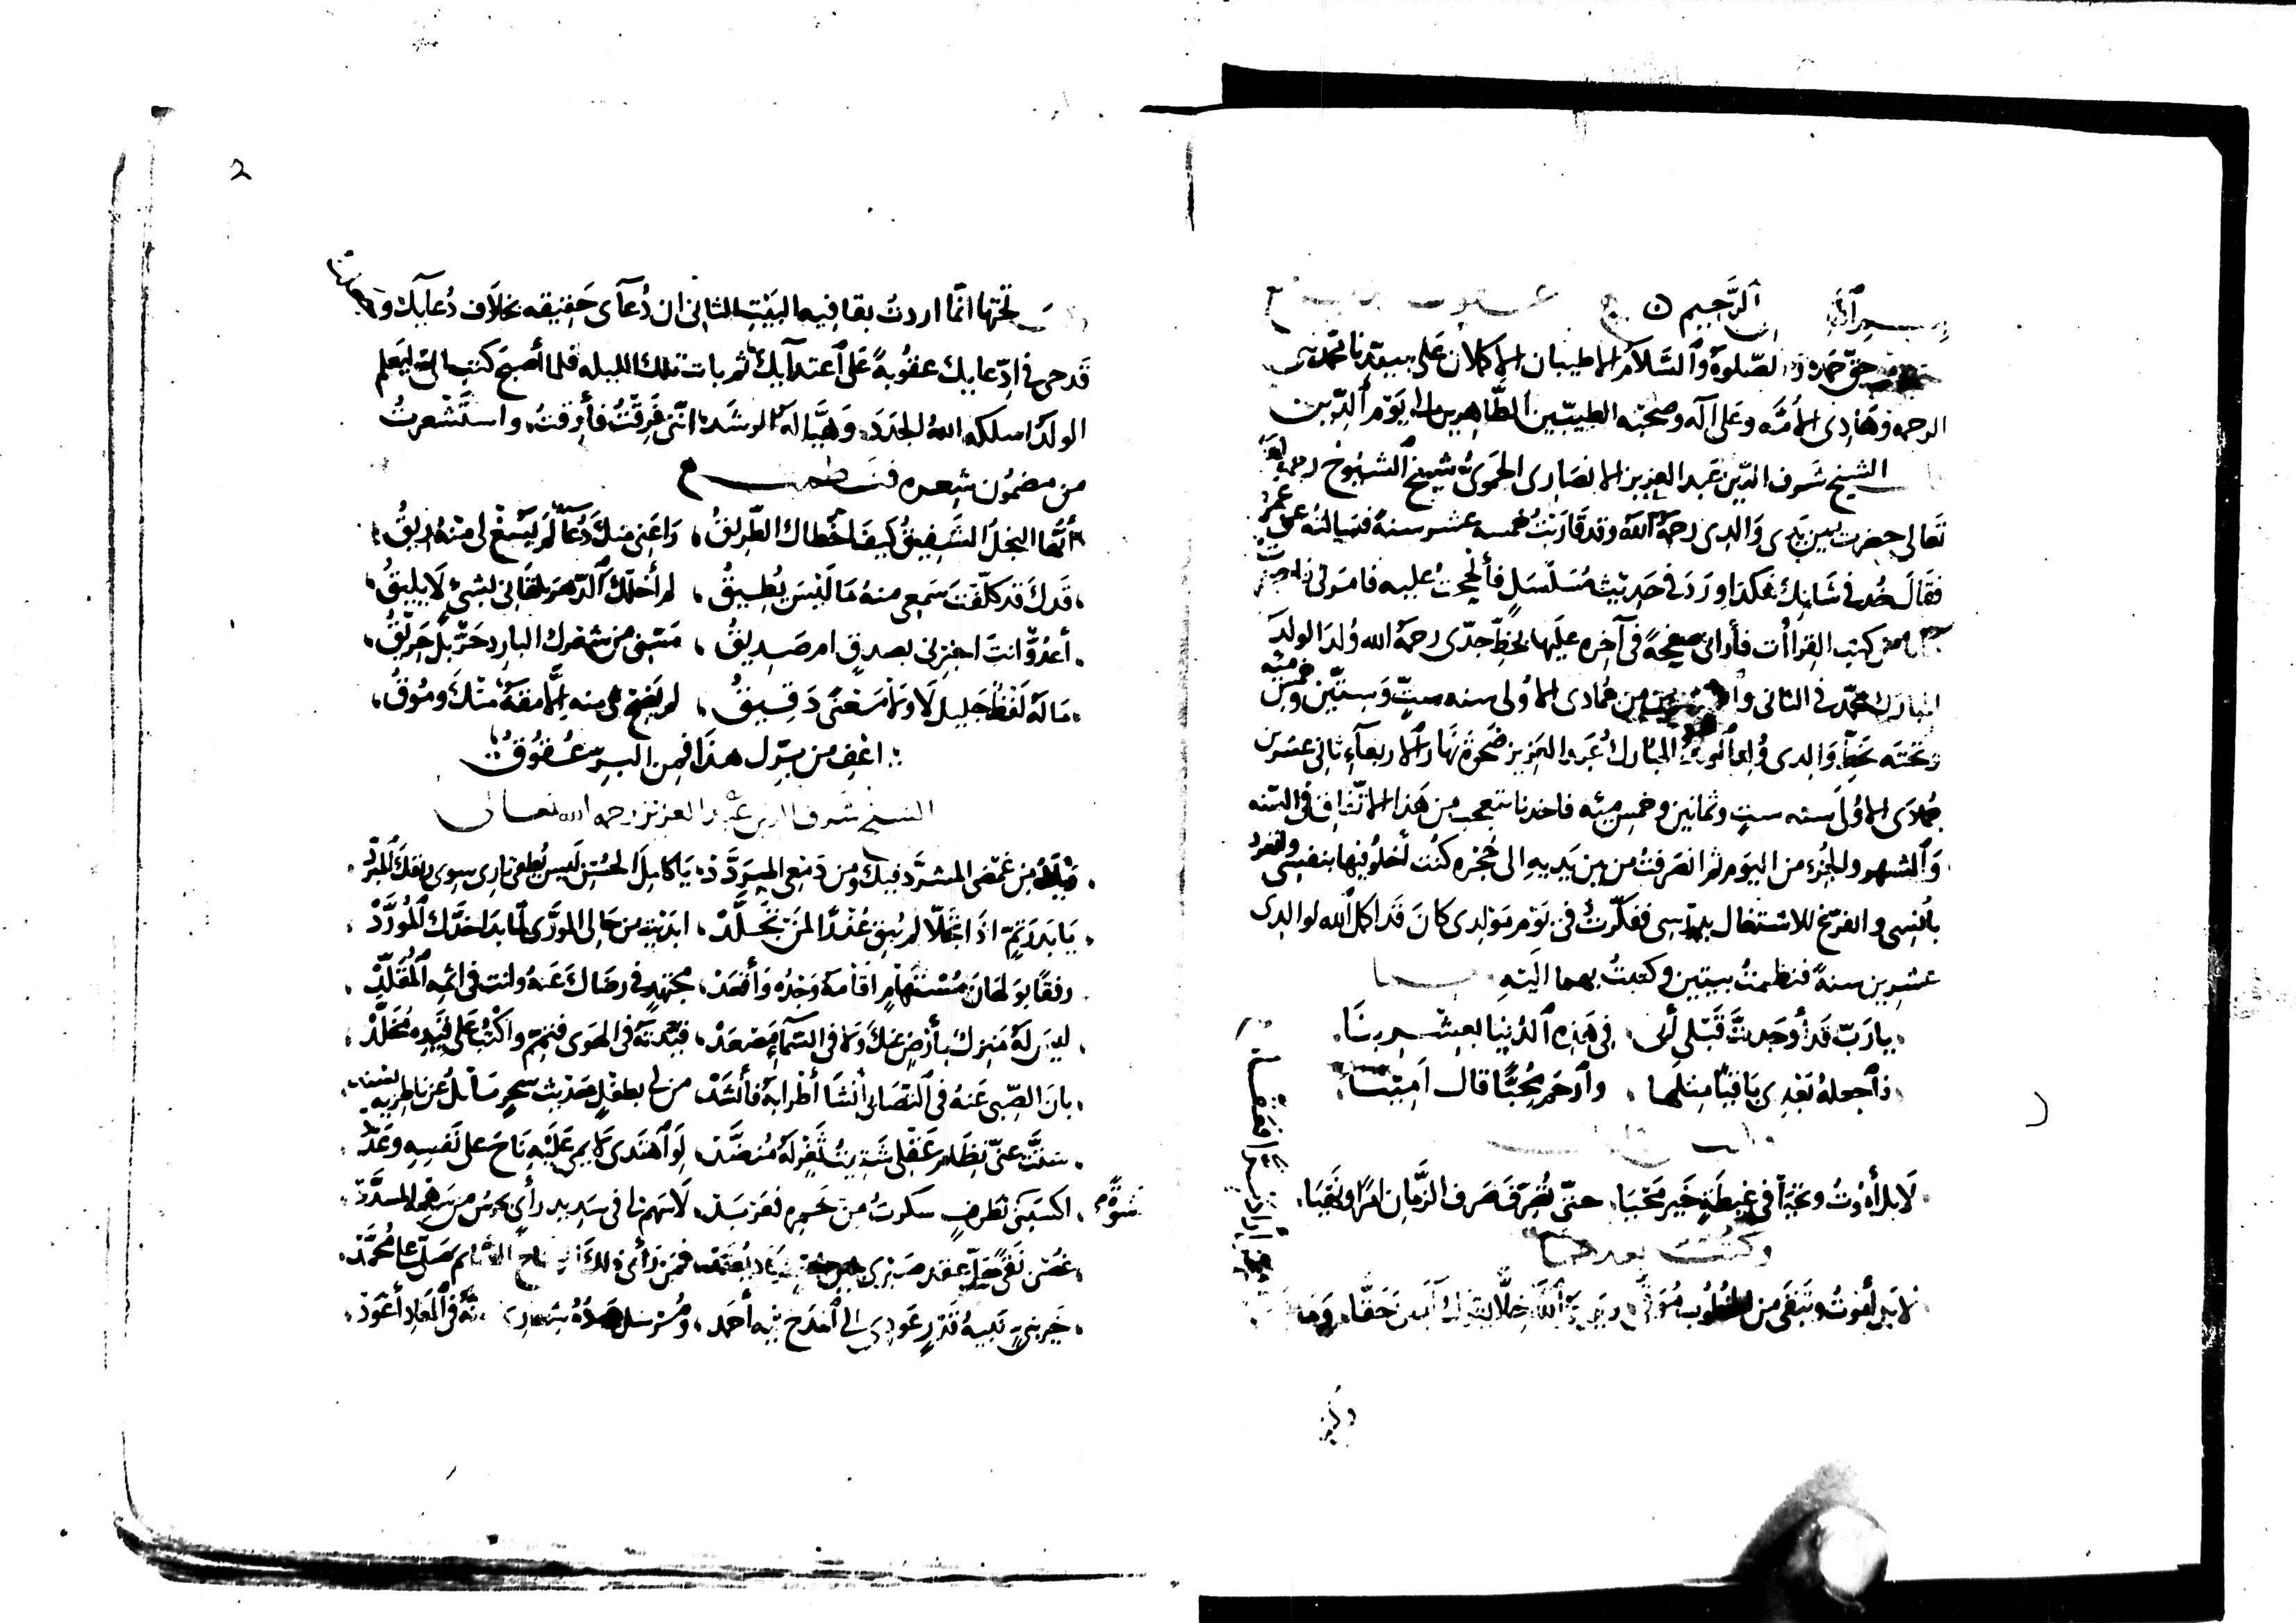 بسم الله الرحيم
حق حمده والصلوة والسلام الاطيبان الاكملان على سيدنا محمد نبي
الرحمه وهادى الأمه وعلى آله وصحبه الطيبين الطاهرين الى يوم الدين
الشيخ شرف الدين عبد العزيز الانصارى الحموى شيخ الشيوخ رحمه الله
تعالى حضرت بين يدى والدى رحمه الله وقد قاربت خمسه عشر سنه فسالته عن عمرى
فقال خذ فى شانك هكذا ورد فى حديث مسلسل فألححت عليه فامرنى
من كتب القراأت فأرانى صفيحة فى آخره عليها بخط جدى رحمه الله ولد الولد
المبارك محمد فى الثانى والعشرين من جمادى الاولى سنه ست وستين وخمس مئه
وتحته بخط والدى ولد الولد المبارك عبد العزيز ضحوة نهار الاربعآء ثانى عشرين
جمادى الاولى سنه ست وثمانين وخمس مئه فاخذنا نتعجب من هذا الاتفاق فى السنه
والشهر والجزء من اليوم ثم انصرفت من بين يديه الى حجره كنت أخلو فيها بنفسى وانفرد
بأنسى واتفرغ للاشتغال بدرسى ففكرت فى يوم مولدى كان قد اكمل الله لوالدى
عشرين سنة فنظمت بيتين وكتبت بهما اليه
يارب قد أوجدت قبلى أبى فى هذه الدنيا بعشرينا
فاجعله بعدى باقيا مثلها وارحم محبا قال امينا
لا بل أموت وتحيا فى غبطة خير محيا حتى تفرق صرف الزمان امرا ونهيا
وكتب بعدهما
لا بل أموت وتبقى من الخطوب موقى
2
تحتها انما اردت بقافيه البيت الثانى ان دعآى حقيقه بخلاف دعآيك و
قدحى فى ادعايك عقوبة على اعتدآيك ثم بات تلك الليله فلما أصبح كتب الى ليعلم
الولد اسلكه الله الجدد وهيا له الرشد اننى فرقت فأرقت واستشعرت
من مضمون شعره فنظمت
أيها النجل الشفيق كيف أخطاك الطريق راعنى منك دعآ لم يسغ لى منه ريق
قدك قد كلفت سمعى منه ما ليس يطيق لم أخلك الدهر تلقانى بشئ لا يليق
أعدو انت اخبرنى بصدق ام صديق مسنى من شعرك البارد حر بل حريق
ماله لفظ جليل لا ولا معنى دقيق لم يضح لى منه الا مقة منك وموق
اعف من برك هذا فمن البر عقوق
الشيخ شرف الدين عبد العزيز رحمه الله تعالى
من غمضى المشرد فيك ومن دمعى المبدد يا كامل الحسن ليس يطفى نارى سوى ريقك المبرد
يا بدر تم اذا تجلا لم يبق عذرا لمن تجلد ابديت من حالى المورى لما بدا خدك المورد
رفقا بولهان مستهام اقامه وجده وأقعد مجتهد فى رضاك عنه وانت فى اثمه المقلد
ليس له منزل بأرض عنك ولا فى السمآء مصعد قيدته فى الهوى فتمم واكتب على قيده مخلد
بان الصبى عنه فى التصابى أنشا أطرابه فأنشد من لى بطفل حديث سحر سابل عن ناظريه يسند
شتت عنى نظام عقلى شتيت ثغر له منضد لو اهتدى لايمى عليه ناح على نفسه وعدد
اكسبنى نظرة سكرت من خمره فعربد لا سهم لى فى سديد رأى يحرس من سهمه المسدد
غصن نقى حل عقد صبرى يكاد يعقد فمن رأى ذلك الوشاح الصائم صلى على محمد
خير نبى نبيه قدر عودى الى المدح فيه أحمد